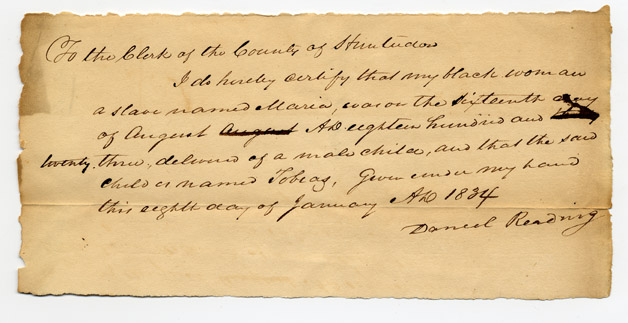 To the Clerk of the County of Hunterdon
I do hereby certify that my black woman
a slave named Maria, was on the sixteenth day
of August August AD eighteen hundred and
twenty three, delivered of a male child, and that the said
child is named Tobias, Given under my hand
this eighth day of January AD 1834
Daniel Reading